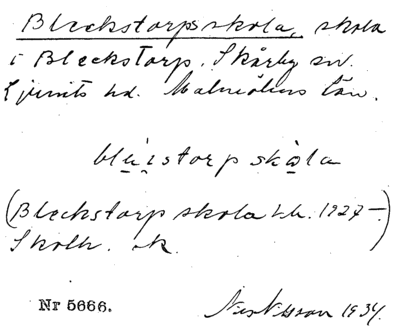 Bleckstorps skola, skola
i Bleckstorp. Skårby sn.
Ljunits hd. Malmöhus län.
blɛ̀istorp skola
(Bleckstorp skola 1927–)
Skolk. ek.
Nr 5666.
Nilsson 1934.